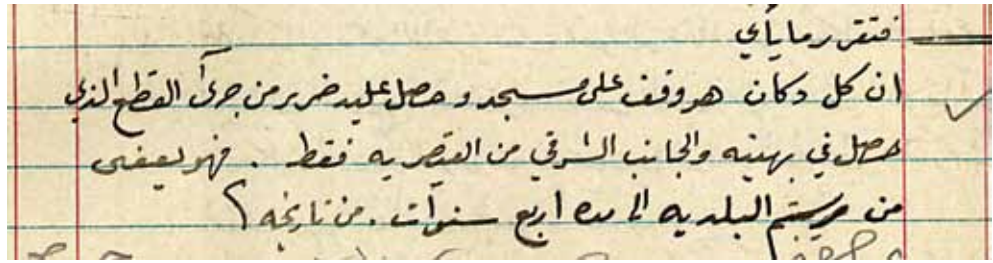 فتقرر ما يأتي
ان كل دكان هو وقف على مسجد و حصل عليه ضرر من جرى القطع الذي
حصل في بهيته والجانب الشرقي من القيصريه فقط . فهو يعفى
من رسم البلديه الى مدة اربع سنوات . من تاريخه